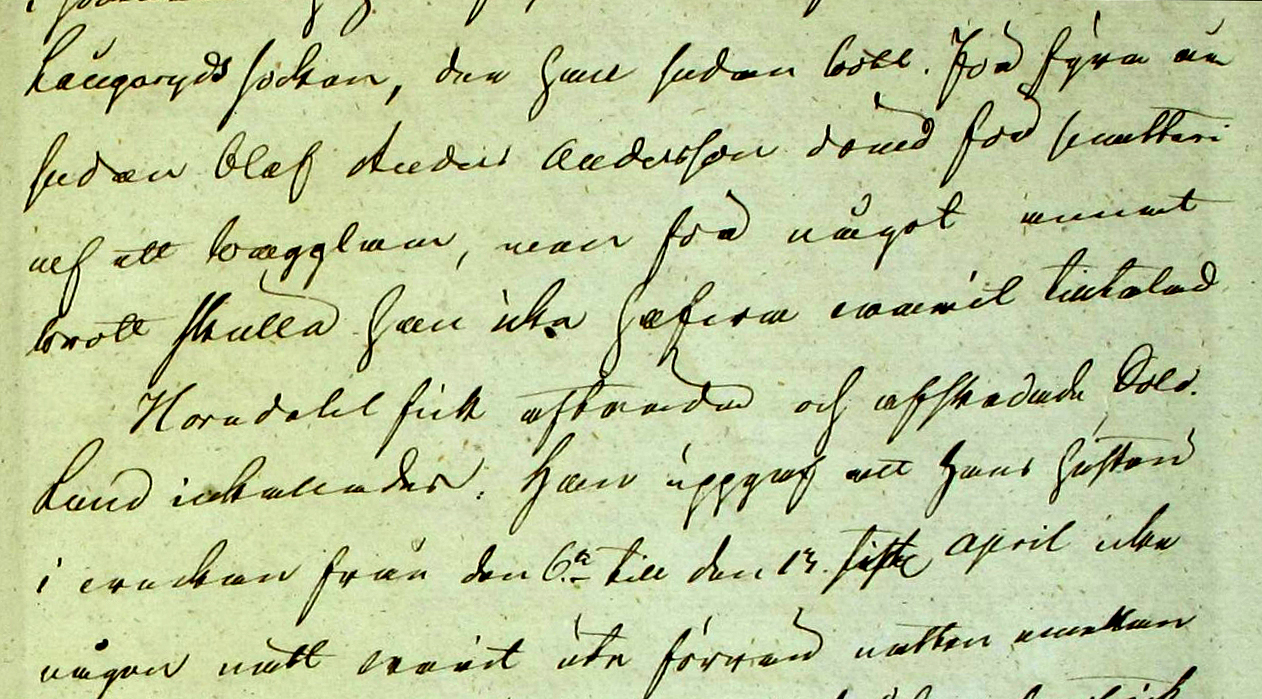 Långaryds socken, der han sedan bott. För fyra år
sedan blef Anders Andersson dömd för snatteri
af ett wagglam, men för något annat
brott skulle han icke hafwa warit tilltalad
Horndahl fick afträda och afskedade Sold.
Lind inkallades. Han uppgaf att hans hustru
i weckan från den 6te till den 13. sistl. April icke
någon natt warit ute förrän natten emellan